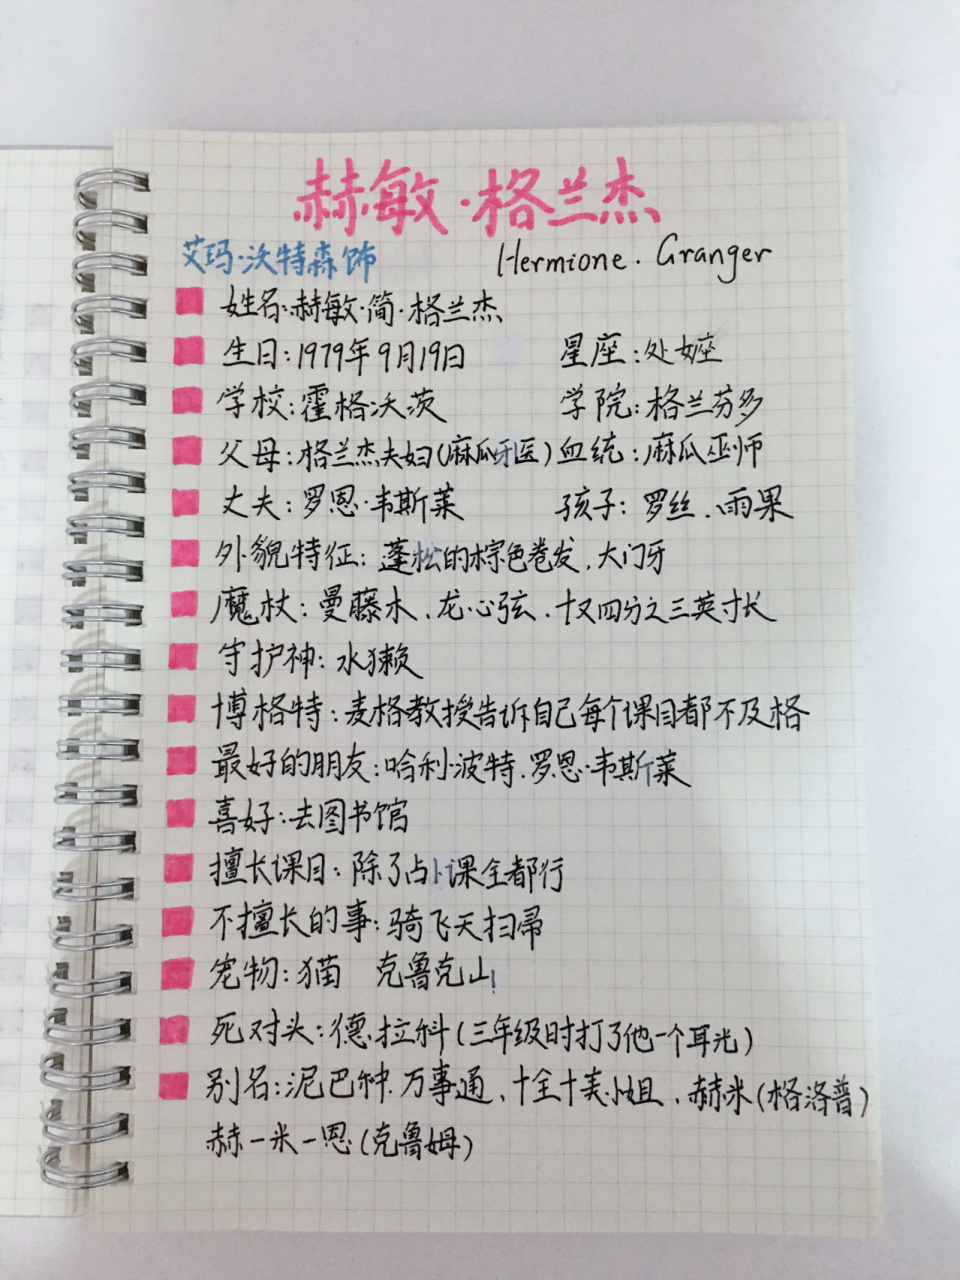 赫敏·格兰杰
艾玛·沃特森饰 Hermione. Granger
姓名:赫敏·简·格兰杰
生日:1979年9月19日 星座:处女座
学校:霍格沃茨 学院:格兰芬多
父母:格兰杰夫妇(麻瓜牙医) 血统:麻瓜巫师
丈夫:罗恩·韦斯莱 孩子:罗丝、雨果
外貌特征:蓬松的棕色卷发、大门牙
魔杖:曼藤木、龙心弦、十又四分之三英寸长
守护神:水獭
博格特:麦格教授告诉自己每个课目都不及格
最好的朋友:哈利·波特、罗恩·韦斯莱
喜好:去图书馆
擅长课目:除了占卜课全都行
不擅长的事:骑飞天扫帚
宠物:猫 克鲁克山
死对头:德·拉科(三年级时打了他一个耳光)
别名:泥巴种、万事通、十全十美小姐、赫米(格洛普)
赫一米一恩(克鲁姆)